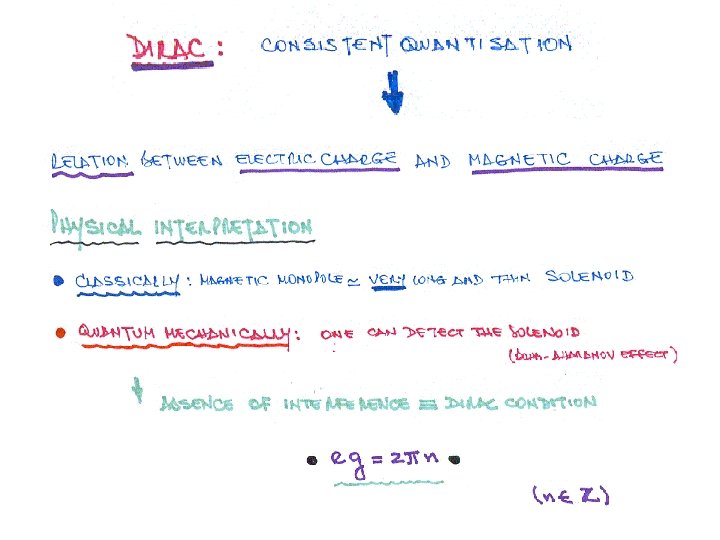 DIRAC: CONSISTENT QUANTISATION
RELATION BETWEEN ELECTRIC CHARGE AND MAGNETIC CHARGE
PHYSICAL INTERPRETATION
• CLASSICALLY: MAGNETIC MONOPOLE ≃ VERY LONG AND THIN SOLENOID
• QUANTUM MECHANICALLY: ONE CAN DETECT THE SOLENOID
(BOHM-AHARANOV EFFECT)
ABSENCE OF INTERFERENCE ≡ DIRAC CONDITION
• eg = 2πn •
(n ∈ ℤ)